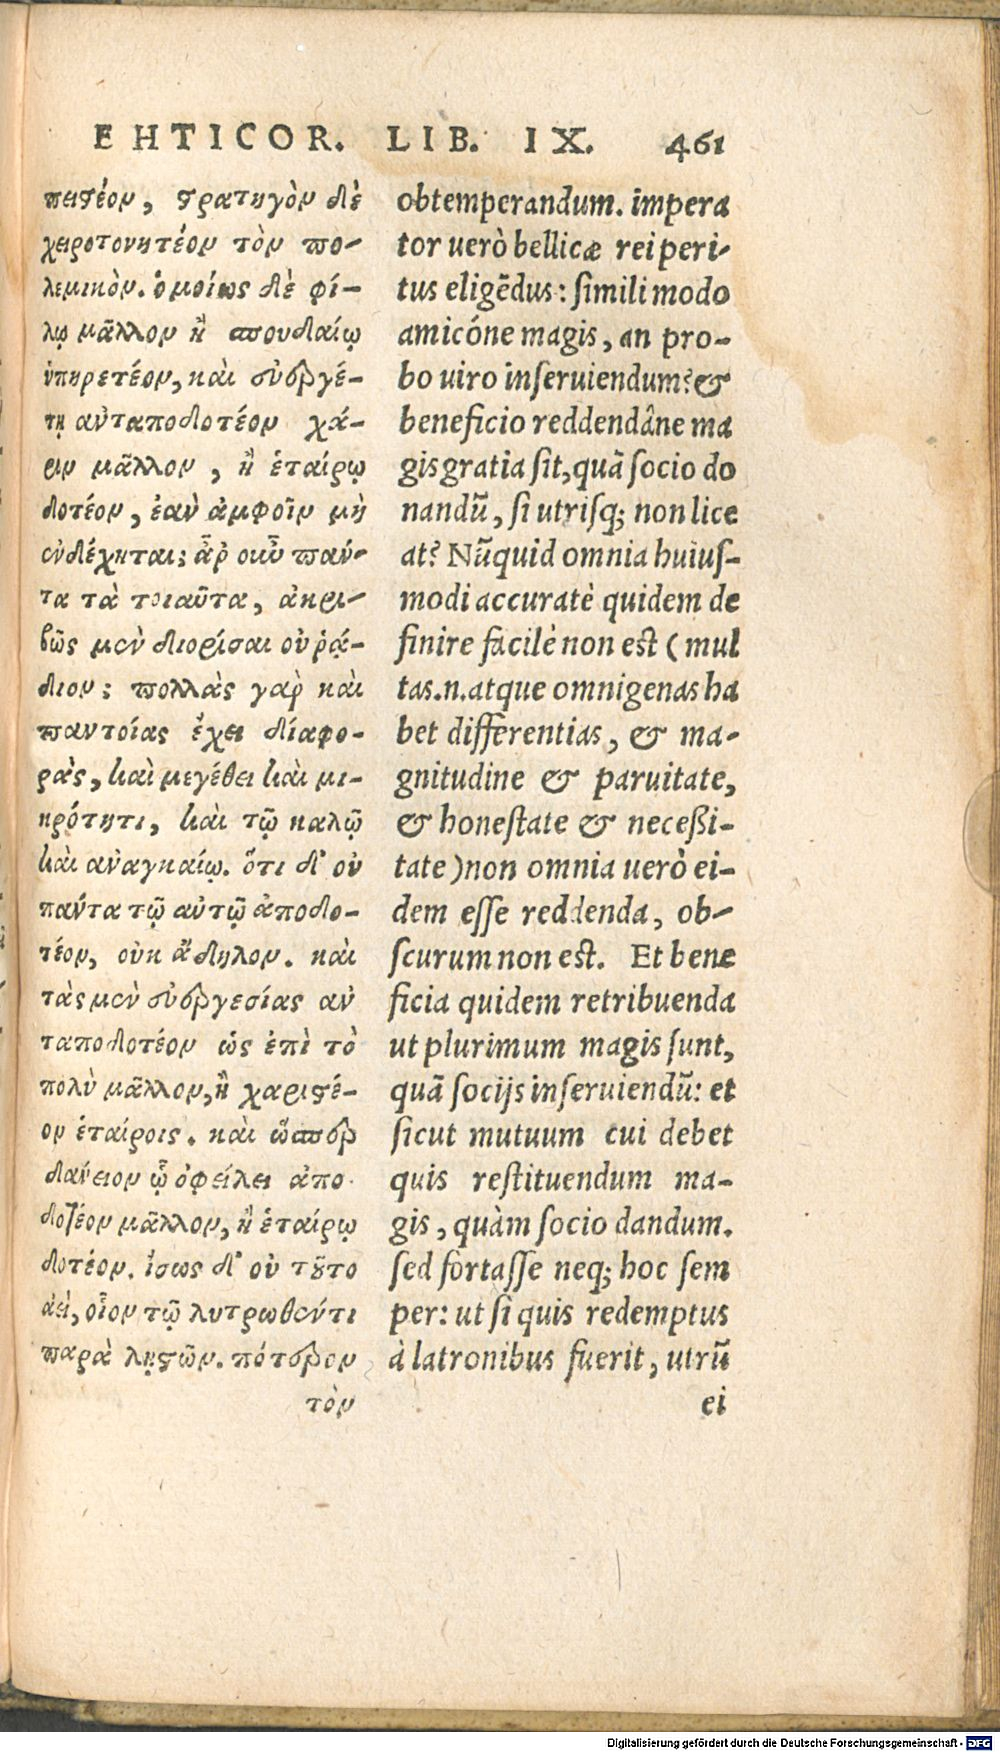 EHTICOR. LIB. IX. 461
πειστέον, στρατηγὸν δὲ
χειροτονητέον τὸν πο-
λεμικὸν. ὁμοίως δὲ φί-
λῳ μᾶλλον ἢ σπουδαίῳ
ὑπηρετέον, καὶ εὐεργέ-
τῃ ἀνταποδοτέον χά-
ριν μᾶλλον, ἢ ἑταίρῳ
δοτέον, ἐὰν ἀμφοῖν μὴ
ἐνδέχηται; ἆρ οὖν πάν-
τα τὰ τοιαῦτα, ἀκρι-
βῶς μὲν διορίσαι οὐ ῥᾴ-
διον; πολλὰς γαρ καὶ
παντοίας ἔχει διαφο-
ρὰς, καὶ μεγέθει καὶ μι-
κρότητι, καὶ τῷ καλῷ
καὶ ἀναγκαίῳ. ὅτι δ' οὐ
πάντα τῷ αὐτῷ ἀποδο-
τέον, οὐκ ἄδηλον. καὶ
τὰς μὲν εὐεργεσίας ἀν
ταποδοτέον ὡς ἐπὶ τὸ
πολὺ μᾶλλον, ἢ χαριστέ-
ον ἑταίροις. καὶ ὥσπερ
δάνειον ᾧ ὀφείλει ἀπο
δοτέον μᾶλλον, ἢ ἑταίρῳ
δοτέον. ἴσως δ' οὐ τοῦτο
ἀεὶ, οἷον τῷ λυτρωθέντι
παρὰ λῃστῶν. πότερον
τὸν
obtemperandum. impera
tor uerò bellicæ rei peri-
tus eligēdus: simili modo
amicóne magis, an pro-
bo uiro inseruiendum? &
beneficio reddendâne ma
gis gratia sit, quā socio do
nandū, si utrisq; non lice
at? Nūquid omnia huius-
modi accuratè quidem de
finire facilè non est (mul
tas.n.atque omnigenas ha
bet differentias, & ma-
gnitudine & paruitate,
& honestate & necessi-
tate) non omnia uerò ei-
dem esse reddenda, ob-
scurum non est. Et bene
ficia quidem retribuenda
ut plurimum magis sunt,
quā socijs inseruiendū: et
sicut mutuum cui debet
quis restituendum ma-
gis, quàm socio dandum.
sed fortasse neq; hoc sem
per: ut si quis redemptus
à latronibus fuerit, utrū
ei
Digitalisierung gefördert durch die Deutsche Forschungsgemeinschaft - DFG